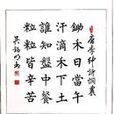 唐李紳詩憫農
鋤禾日當午
汗滴禾下土
誰知盤中餐
粒粒皆辛苦